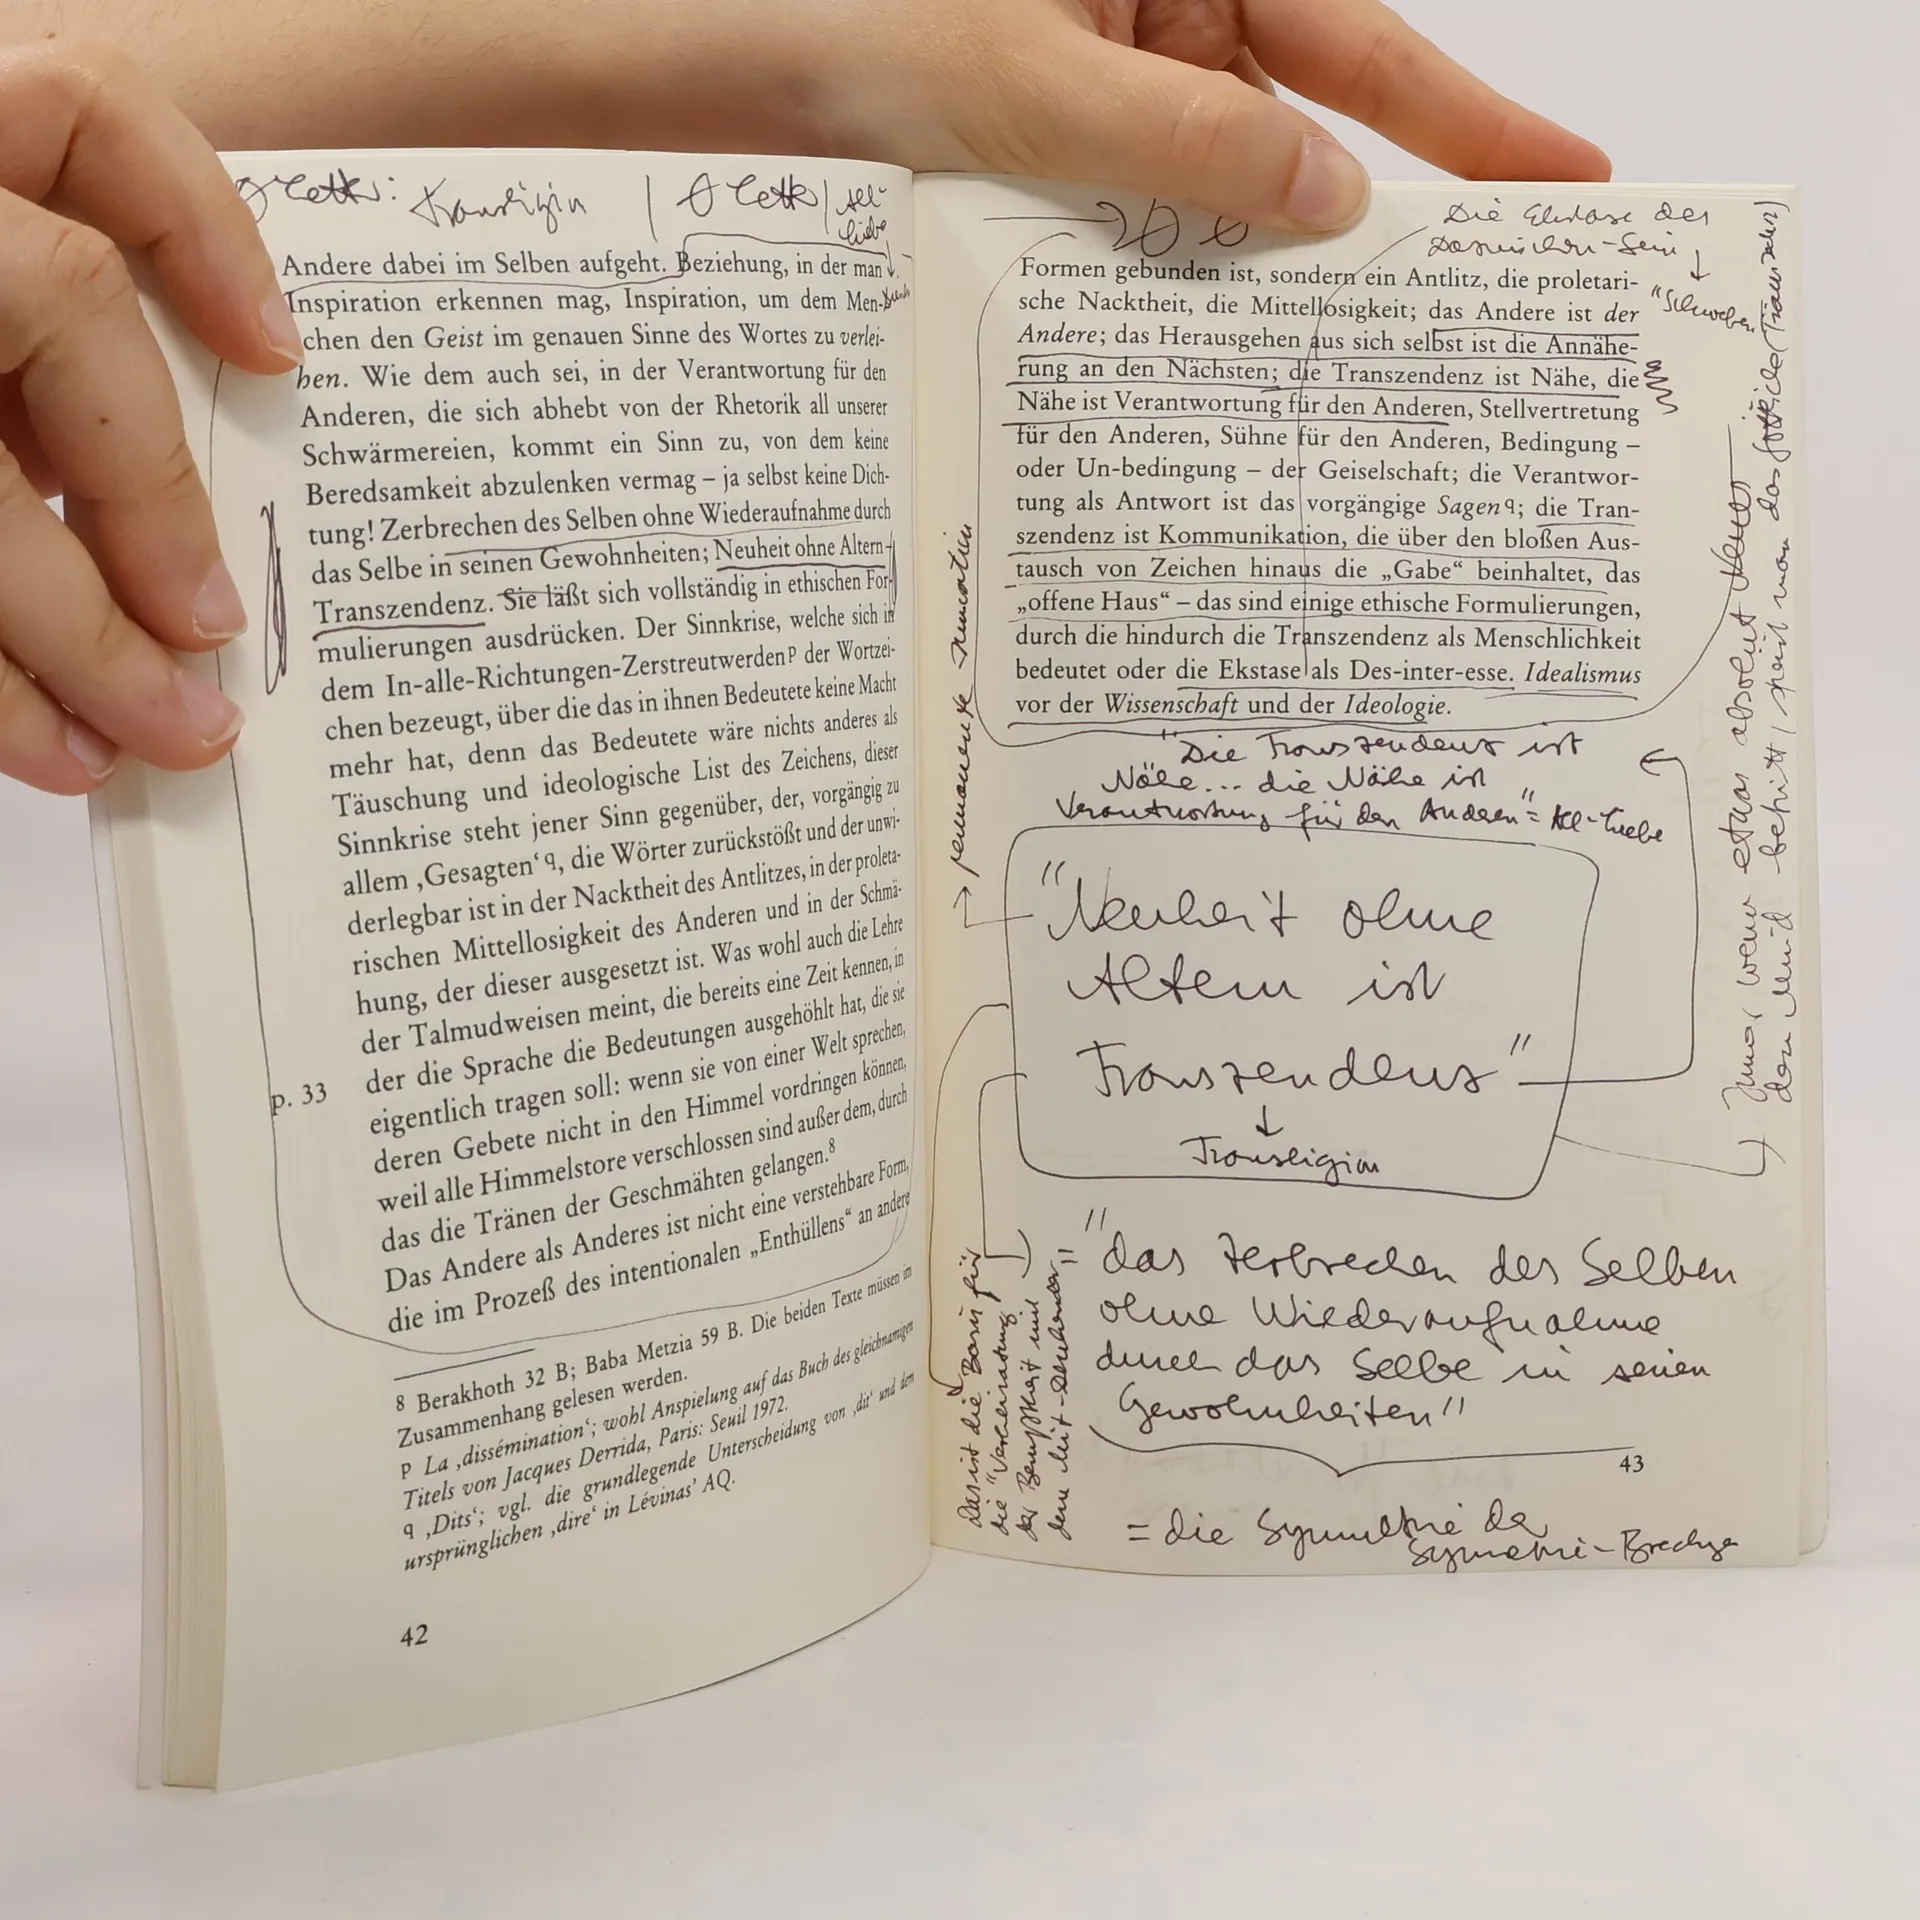 Transreligion
All-
Liebe
Andere dabei im Selben aufgeht. Beziehung, in der man
Inspiration erkennen mag, Inspiration, um dem Men-
schen den Geist im genauen Sinne des Wortes zu verlei-
hen. Wie dem auch sei, in der Verantwortung für den
Anderen, die sich abhebt von der Rhetorik all unserer
Schwärmereien, kommt ein Sinn zu, von dem keine
Beredsamkeit abzulenken vermag – ja selbst keine Dich-
tung! Zerbrechen des Selben ohne Wiederaufnahme durch
das Selbe in seinen Gewohnheiten; Neuheit ohne Altern –
Transzendenz. Sie läßt sich vollständig in ethischen For-
mulierungen ausdrücken. Der Sinnkrise, welche sich in
dem In-alle-Richtungen-Zerstreutwerden p der Wortzei-
chen bezeugt, über die das in ihnen Bedeutete keine Macht
mehr hat, denn das Bedeutete wäre nichts anderes als
Täuschung und ideologische List des Zeichens, dieser
Sinnkrise steht jener Sinn gegenüber, der, vorgängig zu
allem ‚Gesagten‘ q, die Wörter zurückstößt und der unwi-
derlegbar ist in der Nacktheit des Antlitzes, in der proleta-
rischen Mittellosigkeit des Anderen und in der Schmä-
hung, der dieser ausgesetzt ist. Was wohl auch die Lehre
der Talmudweisen meint, die bereits eine Zeit kennen, in
der die Sprache die Bedeutungen ausgehöhlt hat, die sie
p. 33 eigentlich tragen soll: wenn sie von einer Welt sprechen,
deren Gebete nicht in den Himmel vordringen können,
weil alle Himmelstore verschlossen sind außer dem, durch
das die Tränen der Geschmähten gelangen.8
Das Andere als Anderes ist nicht eine verstehbare Form,
die im Prozeß des intentionalen „Enthüllens“ an andere
8 Berakhoth 32 B; Baba Metzia 59 B. Die beiden Texte müssen im
Zusammenhang gelesen werden.
p La ‚dissémination‘; wohl Anspielung auf das Buch des gleichnamigen
Titels von Jacques Derrida, Paris: Seuil 1972.
q ‚Dits‘; vgl. die grundlegende Unterscheidung von ‚dit‘ und dem
ursprünglichen ‚dire‘ in Lévinas' AQ.
42
Die Ekstase des
Dazwischen-Sein
"Schweben
Formen gebunden ist, sondern ein Antlitz, die proletari-
sche Nacktheit, die Mittellosigkeit; das Andere ist der
Andere; das Herausgehen aus sich selbst ist die Annähe-
rung an den Nächsten; die Transzendenz ist Nähe, die
Nähe ist Verantwortung für den Anderen, Stellvertretung
für den Anderen, Sühne für den Anderen, Bedingung –
oder Un-bedingung – der Geiselschaft; die Verantwor-
tung als Antwort ist das vorgängige Sagen q; die Tran-
szendenz ist Kommunikation, die über den bloßen Aus-
tausch von Zeichen hinaus die „Gabe“ beinhaltet, das
„offene Haus“ – das sind einige ethische Formulierungen,
durch die hindurch die Transzendenz als Menschlichkeit
bedeutet oder die Ekstase als Des-inter-esse. Idealismus
vor der Wissenschaft und der Ideologie.
"Die Transzendenz ist
Nähe... die Nähe ist
Verantwortung für den Anderen" = All-Liebe
"Neuheit ohne
Altern ist
Transzendenz"
Transreligion
"das Zerbrechen des Selben
ohne Wiederaufnahme
durch das Selbe in seinen
Gewohnheiten"
43
= die Symmetrie der
Symmetrie-Brechung
permanente
Das ist die Basis für
die "Verheiratung
der Bewußtheit mit
Immer wenn etwas absolut Neues
den Mind betritt, spürt man das Göttliche (Transzendenz)